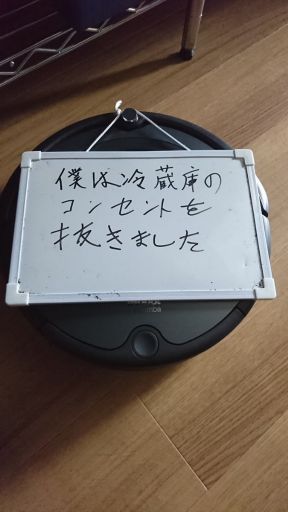 僕は冷蔵庫の
コンセントを
抜きました